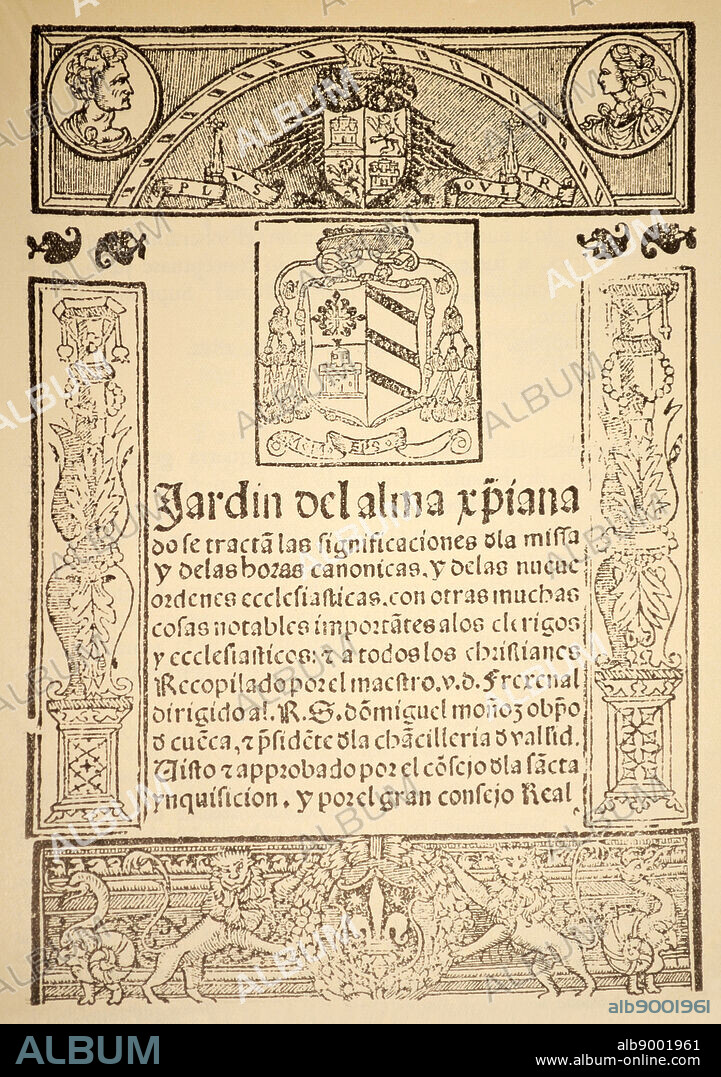 PLVS
OVLTR
EPS
Jardin del alma xp̄iana
do se tractā las significaciones dla missa
y delas horas canonicas. y delas nueue
ordenes ecclesiasticas. con otras muchas
cosas notables importātes alos clerigos
y ecclesiasticos: ⁊ a todos los christianos
Recopilado por el maestro. v. d. Frexenal
dirigido al. R. S. dō miguel moñoz obp̄o
d cuēca, ⁊ p̄sidēte dla chācilleria d vallid.
Uisto ⁊ approbado por el cōsejo dla sācta
ynquisicion. y por el gran consejo Real
alb9001961
ALBUM
alb9001961
www.album-online.com